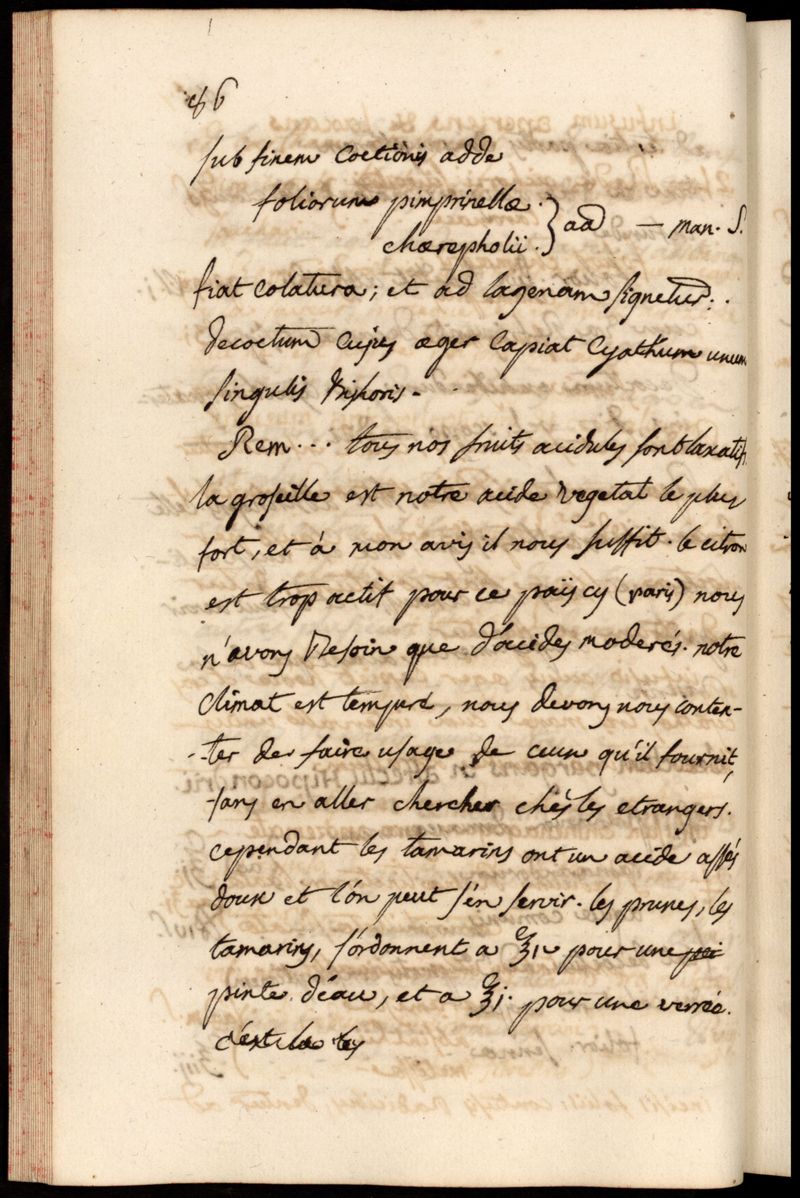 sub finem coctionis adde
foliorum pimprinellæ.
chærepholii. } aa — man. S.
fiat colatura; et ad lagenam signetur:.
decoctum cujus æger capiat Cyathum unum
singulis bihoris.
Rem... tous nos fruits acidules sont laxatifs
la groseille est notre acide vegetal le plus
fort, et à mon avis il nous suffit. le citron
est trop actif pour ce païs cy (paris) nous
n'avons Besoin que d'acides moderés. notre
Climat est temperé, nous devons nous conten-
-ter de faire usage de ceux qu'il fournit,
sans en aller chercher chés les etrangers.
cependant les tamarins ont un acide assés
doux et l'ón peut s'én servir. les prunes, les
tamarins, s'ordonnent a ℥iv pour une
pinte d'éau, et a ℥j. pour une verrée.
c'ést la